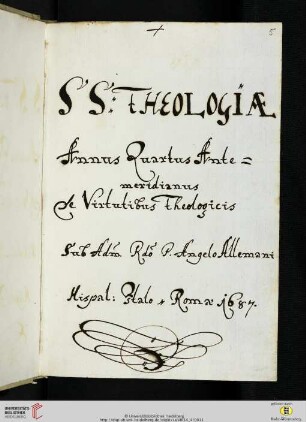 5
SS: THEOLOGIÆ
Annus Quartus Ante=
meridianus
de Virtutibus Theologicis
Sub Adm Rdo P. Angelo Allemani
Hispal: Italo Romæ 1687.
UNIVERSITÄTS-
BIBLIOTHEK
HEIDELBERG
© Universitätsbibliothek Heidelberg
gefördert durch die